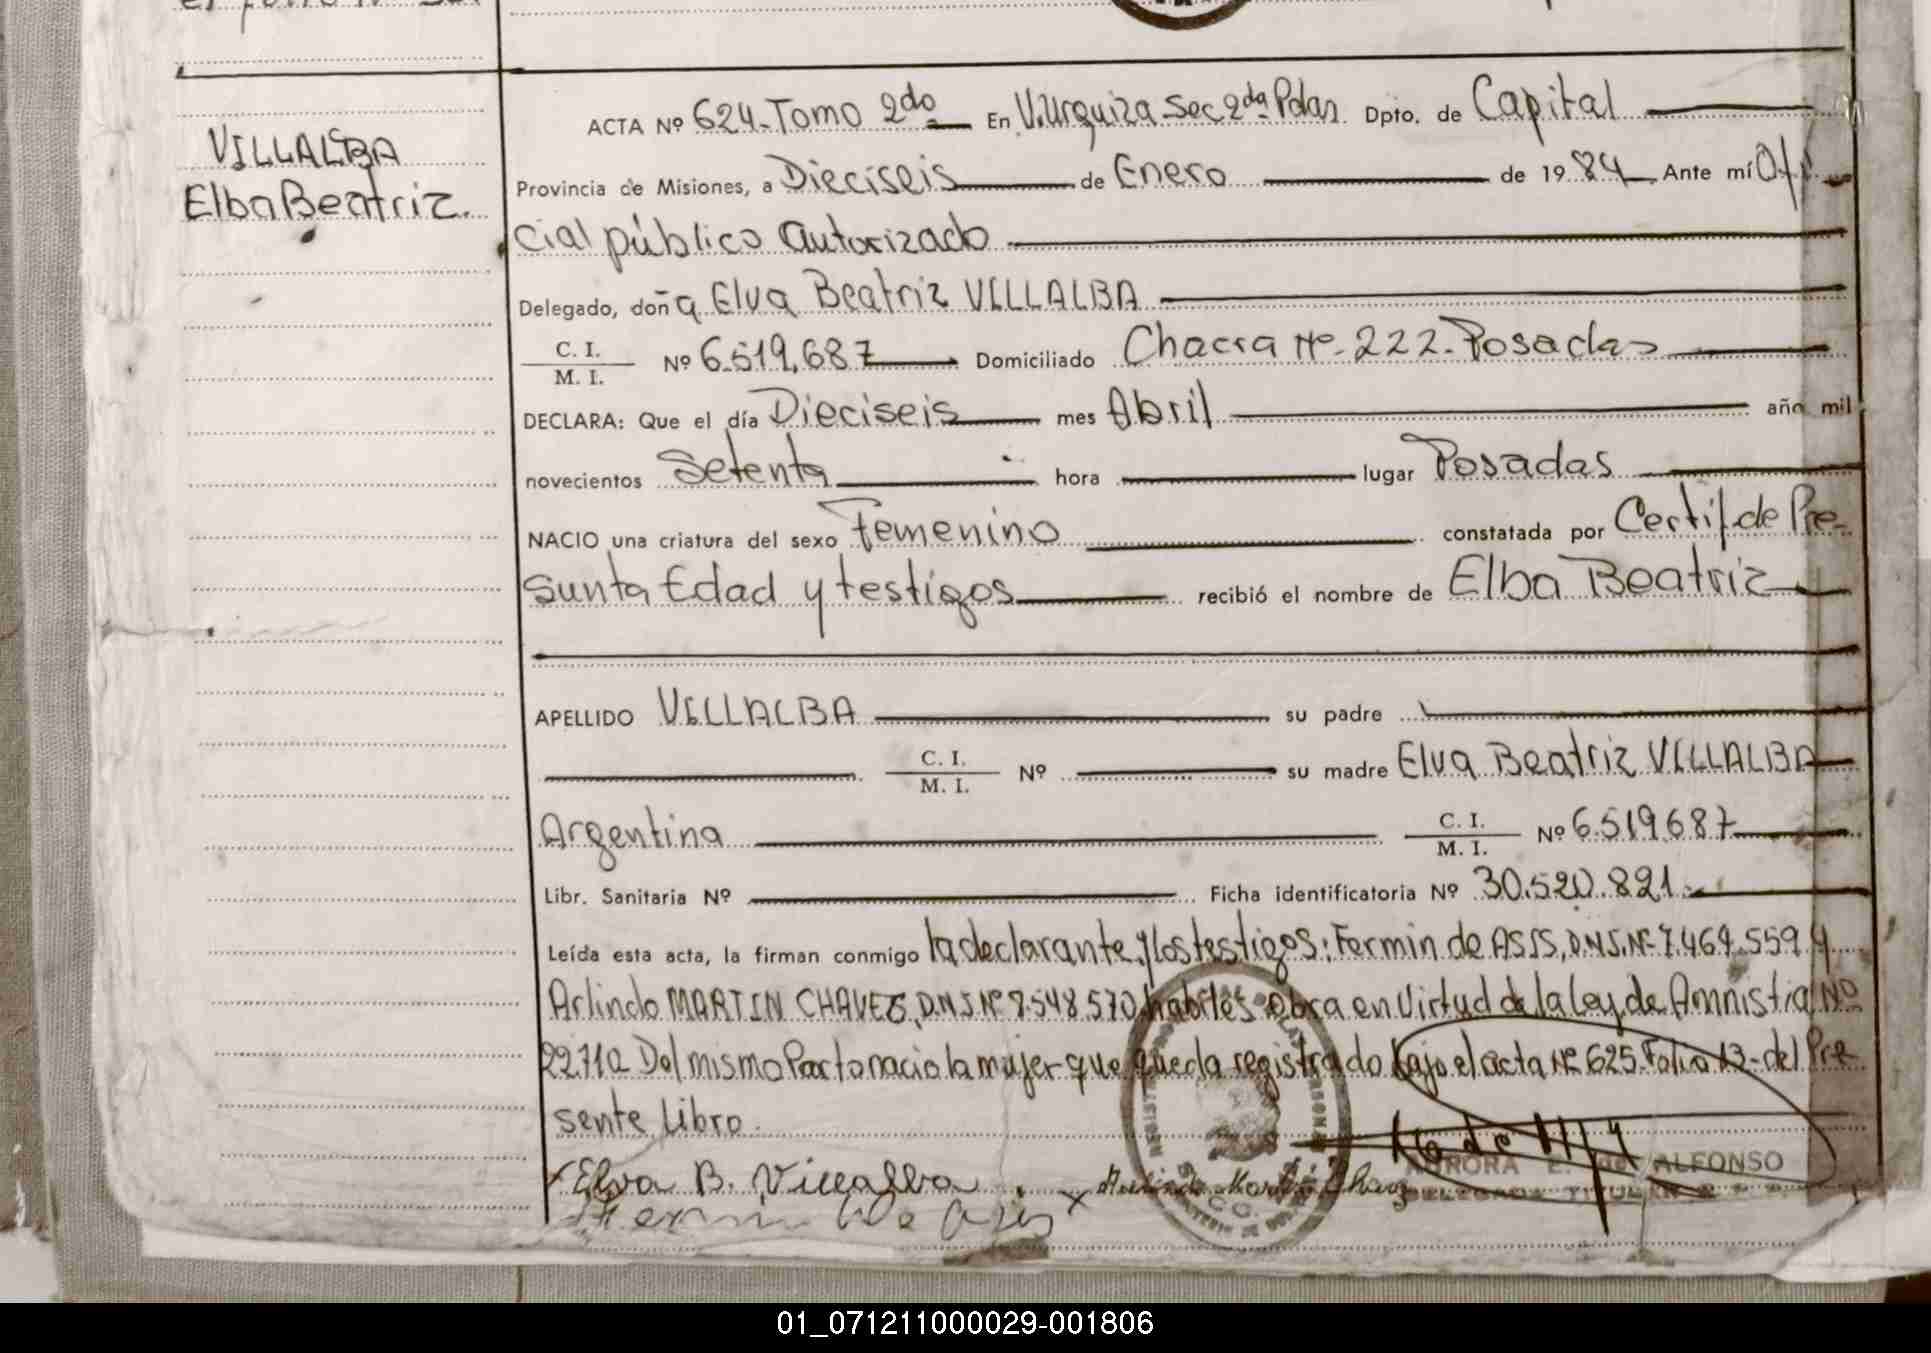 ACTA Nº 624-Tomo 2do En V.Urquiza Sec 2da Pdas. Dpto. de Capital
VILLALBA
Elba Beatriz.
Provincia de Misiones, a Dieciseis de Enero de 1984 Ante mí Ofi
cial público autorizado
Delegado, doña Elva Beatriz VILLALBA
C. I.
M. I. Nº 6.519.687 Domiciliado Chacra Nº 222-Posadas
DECLARA: Que el día Dieciseis mes Abril año mil
novecientos Setenta hora lugar Posadas
NACIO una criatura del sexo Femenino constatada por Certif. de Pre-
sunta Edad y testigos recibió el nombre de Elba Beatriz
APELLIDO VILLALBA su padre
C. I.
M. I. Nº su madre Elva Beatriz VILLALBA
Argentina C. I.
M. I. Nº 6.519.687
Libr. Sanitaria Nº Ficha identificatoria Nº 30.520.821
Leída esta acta, la firman conmigo la declarante y los testigos: Fermin de ASIS, D.N.I. Nº 7.469.559 y
Arlindo MARTIN CHAVES, D.N.I. Nº 7.548.570 habiles obra en Virtud de la Ley de Amnistia Nº
22.710 Del mismo Parto nacio la mujer que queda registrado bajo el acta Nº 625. Folio 13-del Pre
sente Libro.
Elva B. Villalba
AURORA E. de ALFONSO
DELEGADA TITULAR
01_071211000029-001806